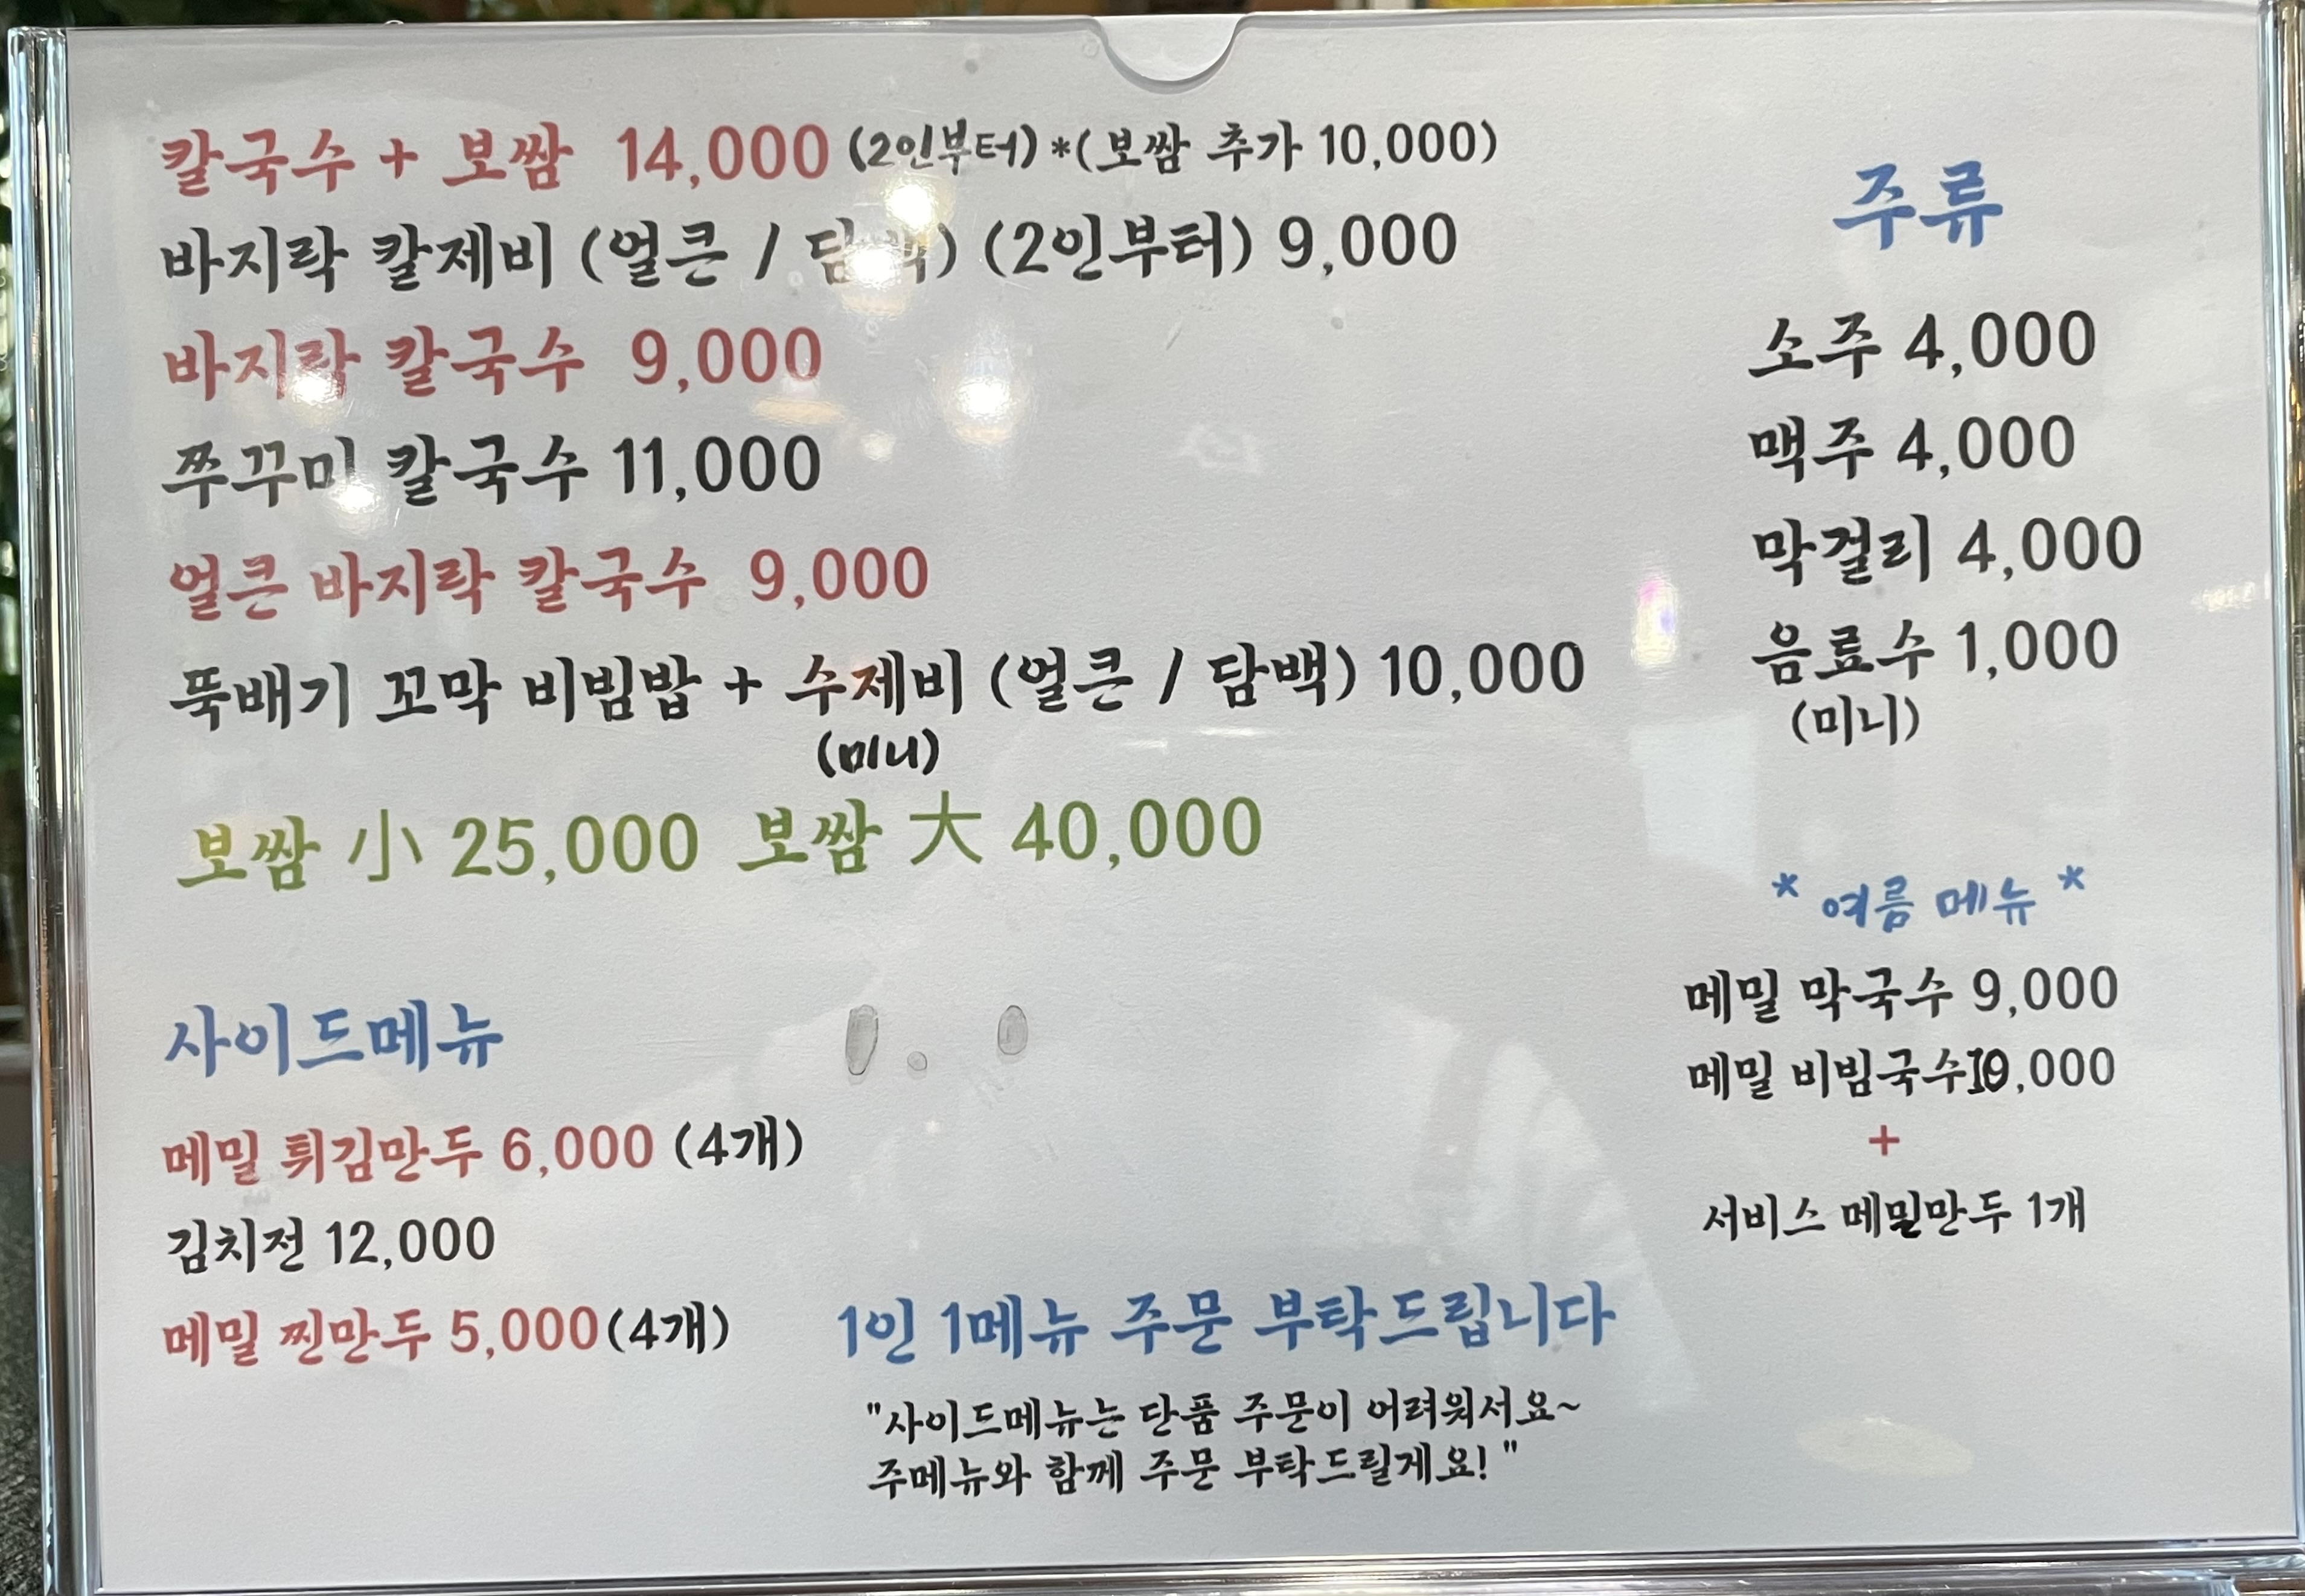 칼국수 + 보쌈 14,000 (2인부터) *(보쌈 추가 10,000)
바지락 칼제비 (얼큰 / 담백) (2인부터) 9,000
바지락 칼국수 9,000
쭈꾸미 칼국수 11,000
얼큰 바지락 칼국수 9,000
뚝배기 꼬막 비빔밥 + 수제비 (얼큰 / 담백) 10,000
(미니)
보쌈 小 25,000 보쌈 大 40,000
사이드메뉴
메밀 튀김만두 6,000 (4개)
김치전 12,000
메밀 찐만두 5,000(4개)
주류
소주 4,000
맥주 4,000
막걸리 4,000
음료수 1,000
(미니)
* 여름 메뉴 *
메밀 막국수 9,000
메밀 비빔국수10,000
+
서비스 메밀만두 1개
1인 1메뉴 주문 부탁드립니다
"사이드메뉴는 단품 주문이 어려워서요~
주메뉴와 함께 주문 부탁드릴게요! "